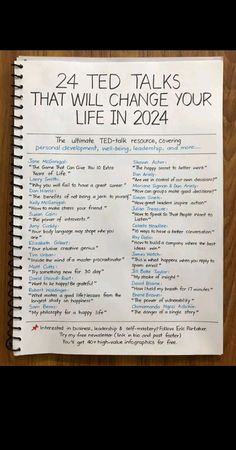 24 TED TALKS
THAT WILL CHANGE YOUR
LIFE IN 2024
The ultimate TED-talk resource, covering
personal development, well-being, leadership, and more...
Jane McGonigal:
"The Game That Can Give You 10 Extra
Years of Life"
Larry Smith:
"Why you will fail to have a great career"
Dan Harris:
"The benefits of not being a jerk to yourself"
Kelly McGonigal:
"How to make stress your friend"
Susan Cain:
"The power of introverts"
Amy Cuddy:
"Your body language may shape who you
are"
Elizabeth Gilbert:
"Your elusive creative genius"
Tim Urban:
"Inside the mind of a master procrastinator"
Matt Cutts:
"Try something new for 30 day"
David Steindl-Rast:
"Want to be happy? Be grateful"
Robert Waldinger:
"What makes a good life? Lessons from the
longest study on happiness"
Sam Berns:
"My philosophy for a happy life"
Shawn Achor:
"The happy secret to better work"
Dan Ariely:
"Are we in control of our own decisions?"
Mariano Sigman & Dan Ariely:
"How can groups make good decisions?"
Simon Sinek:
"How great leaders inspire action"
Julian Treasure:
"How to Speak So That People Want to
Listen"
Celeste Headlee:
"10 ways to have a better conversation"
Ray Dalio:
"How to build a company where the best
ideas win"
James Veitch:
"This is what happens when you reply to
spam email"
Jill Bolte Taylor:
"My stroke of insight"
David Blaine:
"How I held my breath for 17 minutes"
Brené Brown:
"The power of vulnerability"
Chimamanda Ngozi Adichie:
"The danger of a single story"
Interested in business, leadership & self-mastery? Follow Eric Partaker.
Try my free newsletter (link in bio and past footer)
You'll get 40+ high-value infographics for free.